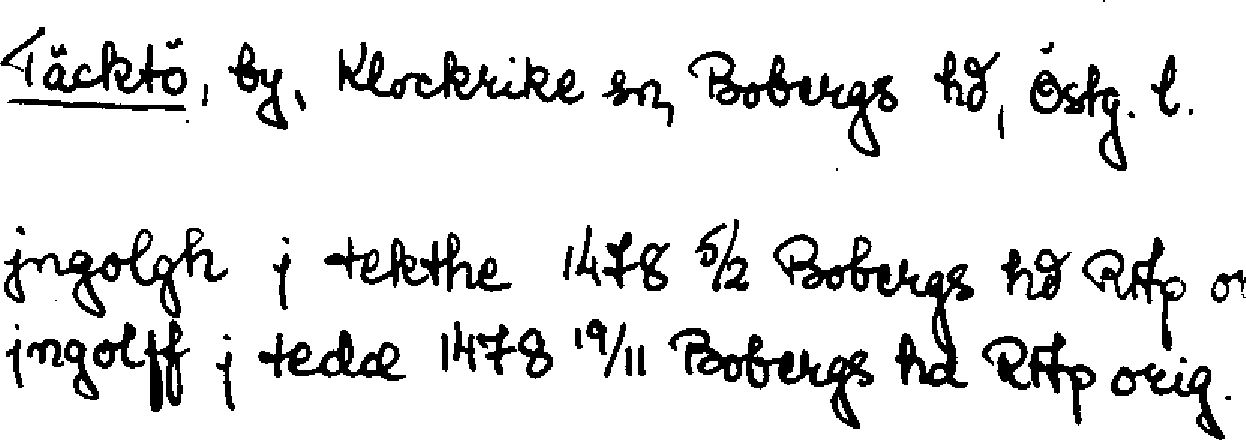 Täcktö, by, Klockrike sn, Bobergs hd, Östg. l.
jngolgh j tekthe 1478 5/2 Bobergs hd RAp or
jngolff j tedæ 1478 19/11 Bobergs hd RAp orig.